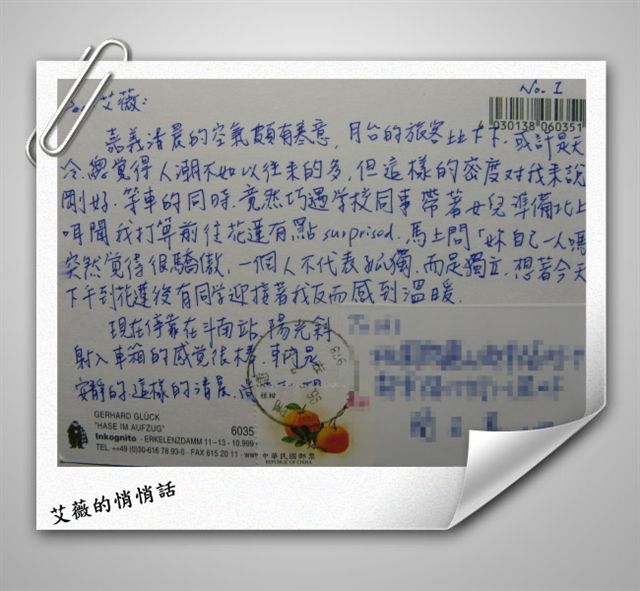 No. 1
艾薇:
嘉義清晨的空氣頗有寒意,月台的旅客比比,或許是天
冷,總覺得人潮不如以往來的多,但這樣的密度對我來說
剛好.等車的同時,竟然巧遇學校同事帶著女兒準備北上
耳聞我打算前往花蓮有點surprised.馬上問「妳自己一人嗎
突然覺得很驕傲,一個人不代表孤獨,而是獨立,想著今天
下午到花蓮後有同學迎接著我反而感到溫暖.
現在停靠在斗南站,陽光斜
射入車箱的感覺很棒.車內是
安靜的,這樣的清晨.
4030138 060351
GERHARD GLÜCK
"HASE IM AUFZUG"
6035
Inkognito · ERKELENZDAMM 11–13 · 10.999
TEL. ++49 (0)30-616 78 93-0 · FAX 615 20 11 · WWW
中華民國郵票
REPUBLIC OF CHINA
艾薇的悄悄話